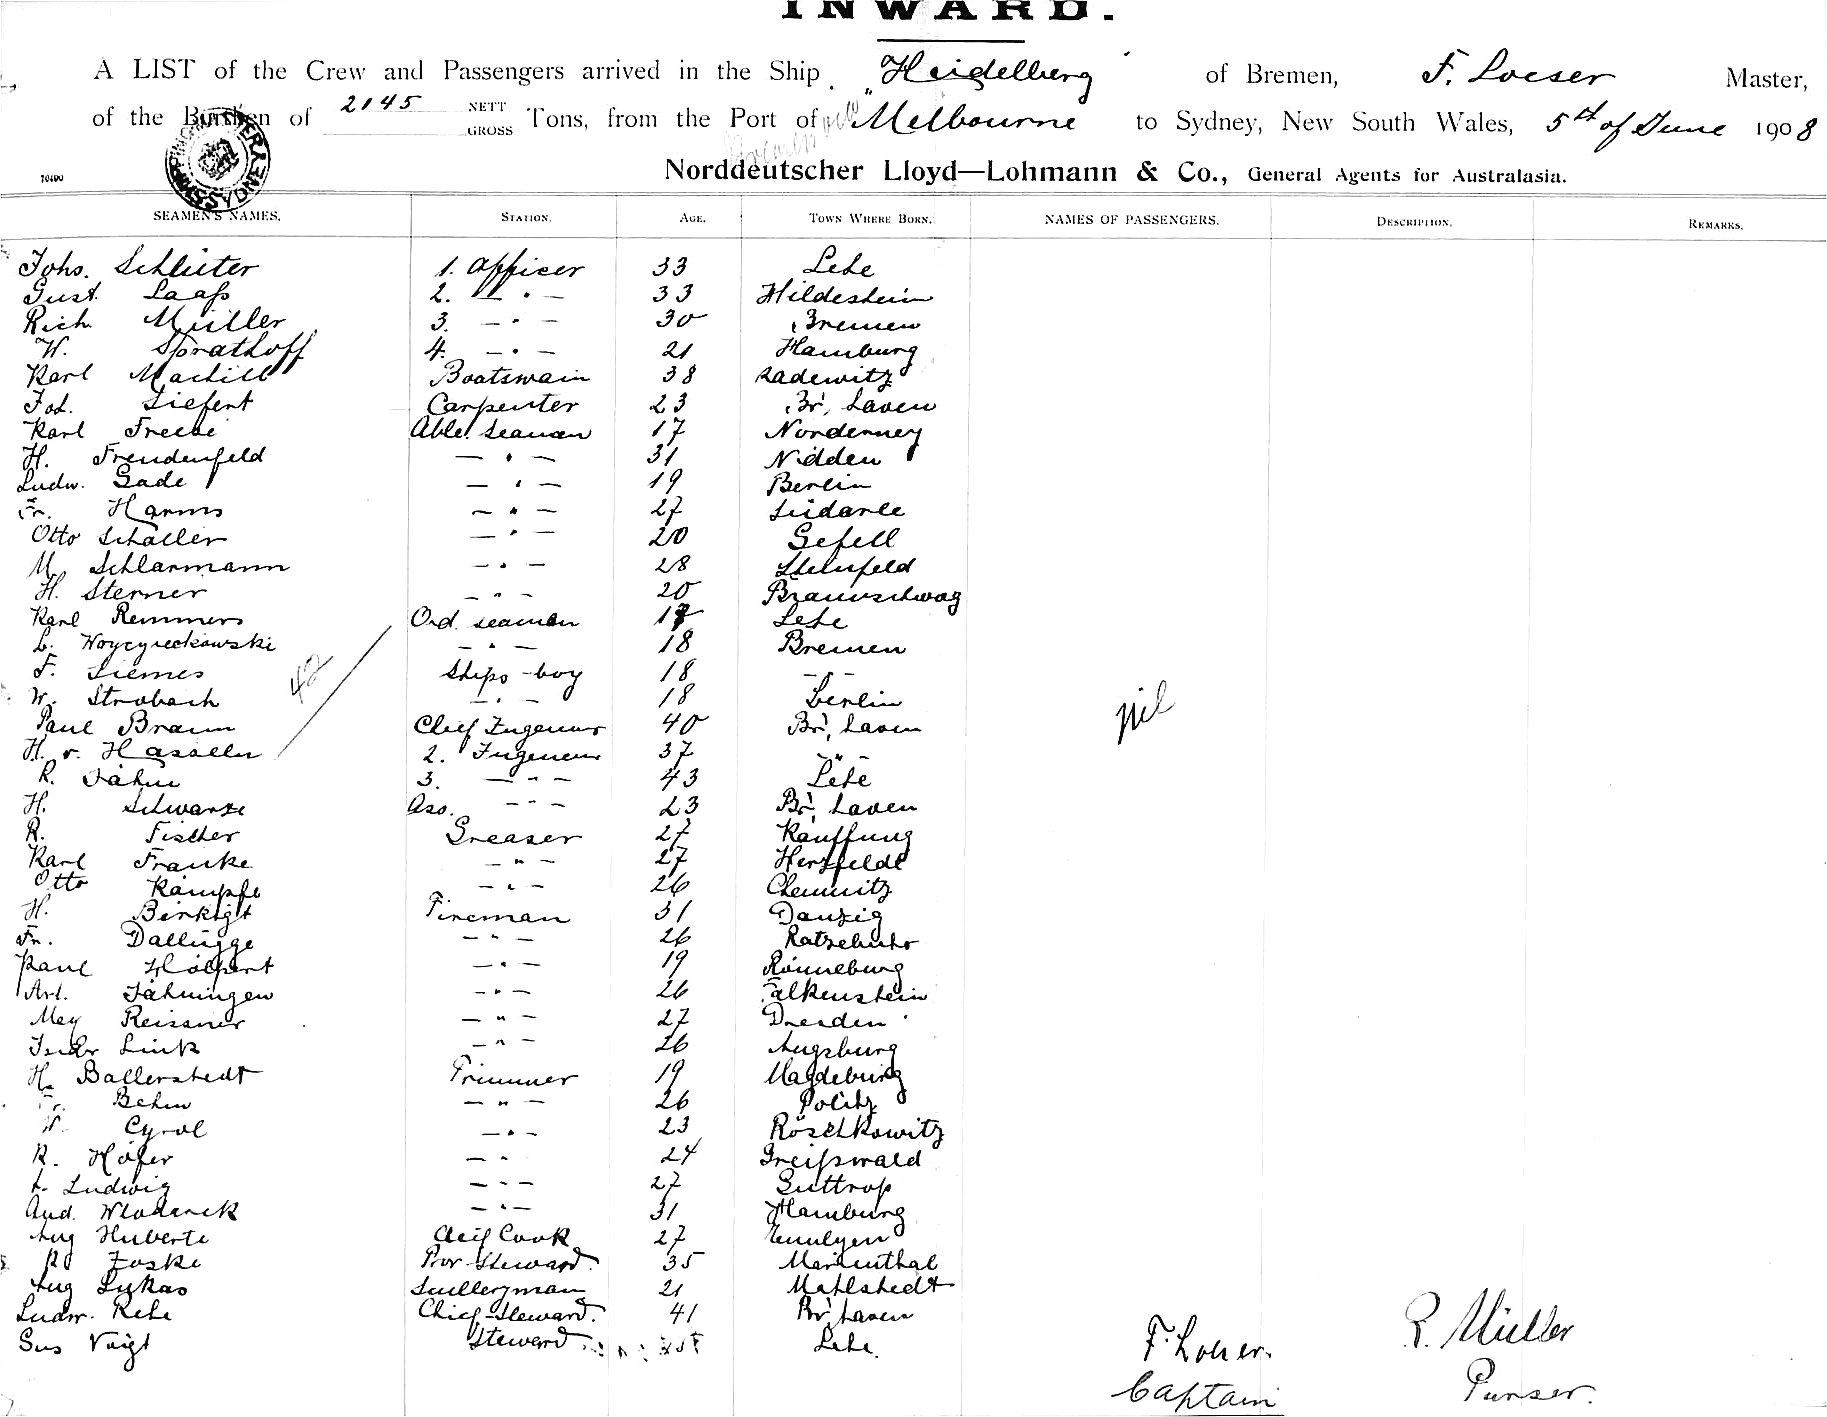 INWARD.
A LIST of the Crew and Passengers arrived in the Ship "Heidelberg" of Bremen, F. Loeser Master,
of the Burthen of 2145 NETT GROSS Tons, from the Port of Melbourne to Sydney, New South Wales, 5th of June 1908
Norddeutscher Lloyd—Lohmann & Co., General Agents for Australasia.
SEAMEN'S NAMES. STATION. AGE. TOWN WHERE BORN. NAMES OF PASSENGERS. DESCRIPTION. REMARKS.
Johs. Schlüter 1. Officer 33 Lehe
Gust. Laass 2. — " — 33 Hildesheim
Rich. Müller 3. — " — 30 Bremen
W. Sprathoff 4. — " — 21 Hamburg
Karl Machill Boatswain 38 Radewitz
Joh. Siefert Carpenter 23 Br. haven
Karl Freese Able seaman 17 Norderney
H. Freudenfeld — " — 31 Nidden
Ludw. Gade — " — 19 Berlin
Fr. Harms — " — 27 Südarle
Otto Schaller — " — 20 Gefell
M. Schlarmann — " — 28 Steinfeld
H. Sterner — " — 20 Braunschwag
Karl Remmers Ord. seaman 17 Lehe
L. Woycyieckowski — " — 18 Bremen
F. Siemes Ships-boy 18 — " —
W. Strobach — " — 18 Berlin
42
nil
Paul Braun Chief Ingenieur 40 Br. haven
H. v. Hasseln 2. Ingenieur 37 — " —
R. Jähn 3. — " — 43 Lehe
H. Schwarze Ass. — " — 23 Br. haven
R. Fischer Greaser 27 Kauffung
Karl Franke — " — 27 Herzfelde
Otto Kämpfe — " — 26 Chemnitz
H. Birkigt Fireman 31 Danzig
Fr. Dallügge — " — 26 Ratzebuhr
Paul Hölpert — " — 19 Rönneburg
Art. Jähningen — " — 26 Falkenstein
Mey Reissner — " — 27 Dresden
Isidr Link — " — 26 Augsburg
H. Ballerstedt Trimmer 19 Magdeburg
Fr. Behm — " — 26 Politz
W. Cyrol — " — 23 Röschkowitz
R. Höfer — " — 24 Greifswald
L. Ludwig — " — 27 Suttrop
And. Wlodarck — " — 31 Hamburg
Aug Huberti Chief Cook 27
Rd Foske Prov Steward. 35 Marienthal
Aug Lukas Sculleryman 21 Mahlstedt
Ludw. Rehe Chief-Steward. 41 Br. haven
Gus Voigt Steward Lehe.
F. Loeser. R. Müller
Captain Purser.